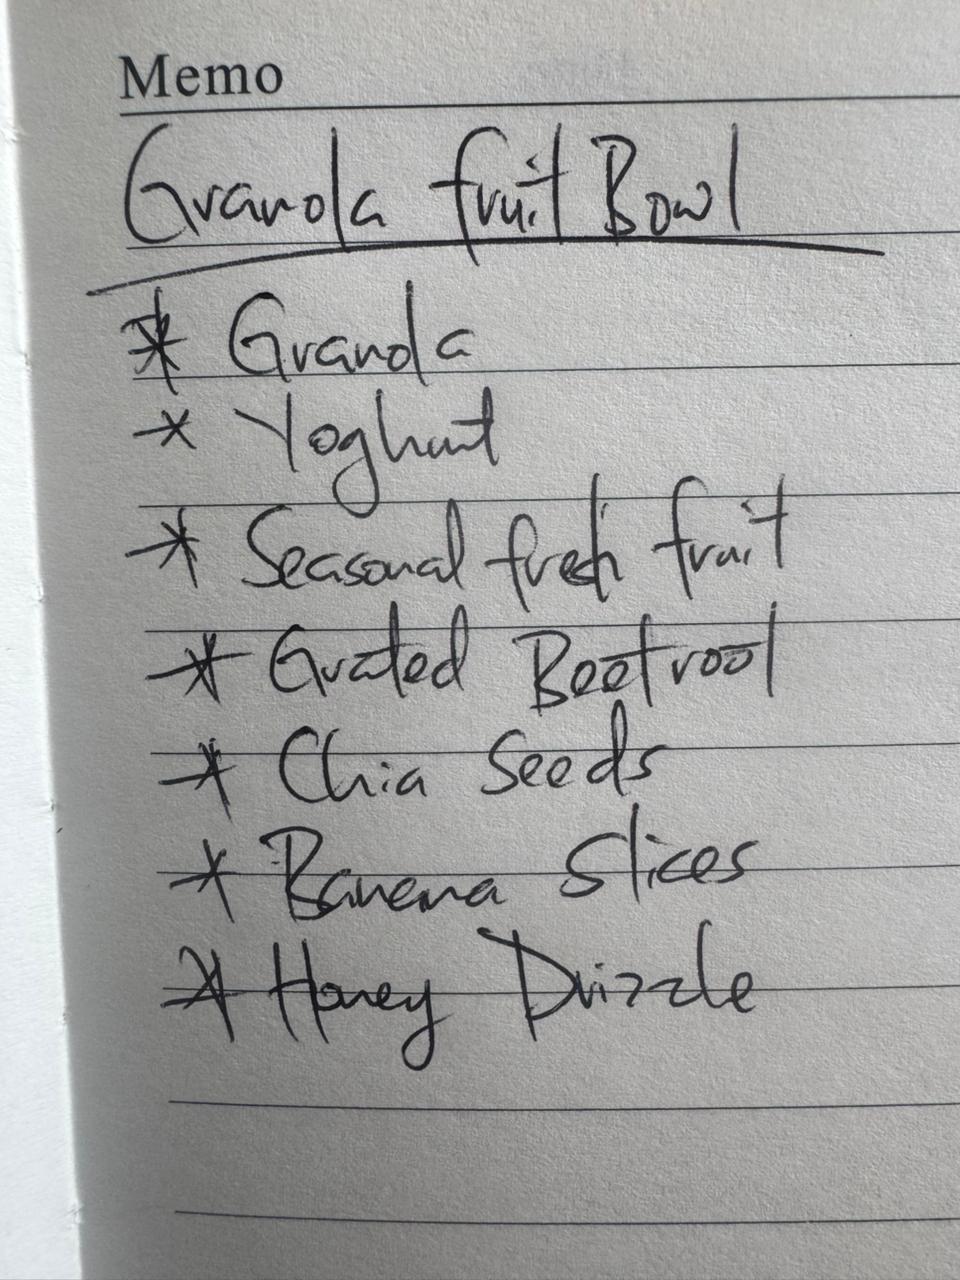 Memo
Granola fruit Bowl
* Granola
* Yoghurt
* Seasonal fresh fruit
* Grated Beetroot
* Chia Seeds
* Banana Slices
* Honey Drizzle